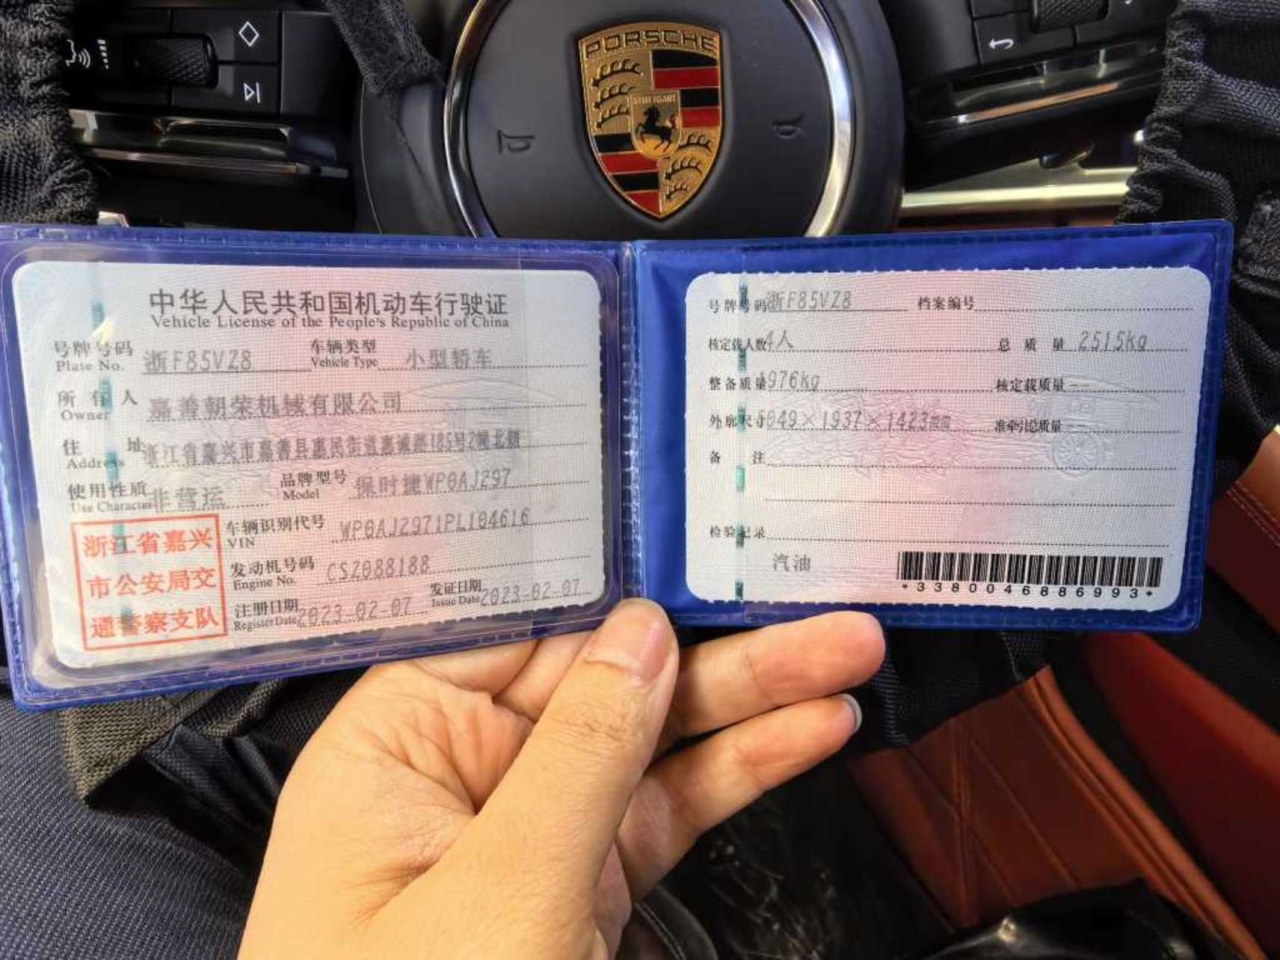 PORSCHE
STUTTGART
中华人民共和国机动车行驶证
Vehicle License of the People's Republic of China
号牌号码 浙F85VZ8 车辆类型 小型轿车
Plate No. Vehicle Type
所有人 嘉善朝荣机械有限公司
Owner
住址 浙江省嘉兴市嘉善县惠民街道嘉诚路185号2幢北侧
Address
使用性质 非营运 品牌型号 保时捷WP0AJ297
Use Character Model
浙江省嘉兴
市公安局交
通警察支队
车辆识别代号 WP0AJ2971PL104616
VIN
发动机号码 CSZ088188
Engine No.
注册日期 2023-02-07 发证日期 2023-02-07
Register Date Issue Date
号牌号码 浙F85VZ8 档案编号
核定载人数 4人 总质量 2515kg
整备质量 1976kg 核定载质量 --
外廓尺寸 5049×1937×1423mm 准牵引总质量 --
备注
检验记录
汽油
*3380046886993*